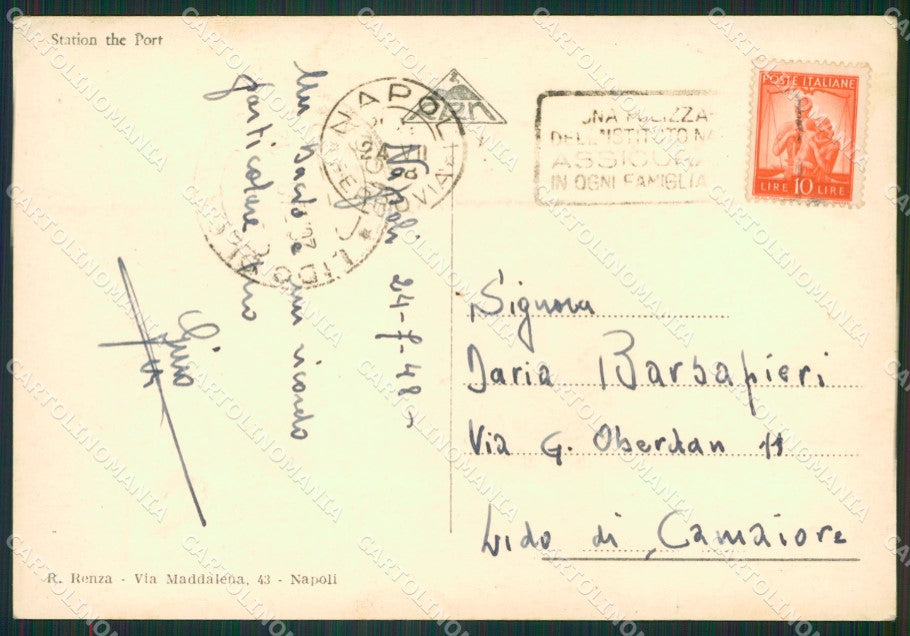 Station the Port
NAPOLI
FERROVIA
24 VII
LIDO
UNA POLIZZA
DELL'ISTITUTO NA
ASSICURA
IN OGNI FAMIGLIA
POSTE ITALIANE
LIRE 10 LIRE
Napoli 24-7-48
Un bacio e un ricordo
particolare
Signora
Daria Barsapieri
Via G. Oberdan 11
Lido di Camaiore
R. Renza - Via Maddalena, 43 - Napoli
CARTOLINOMANIA